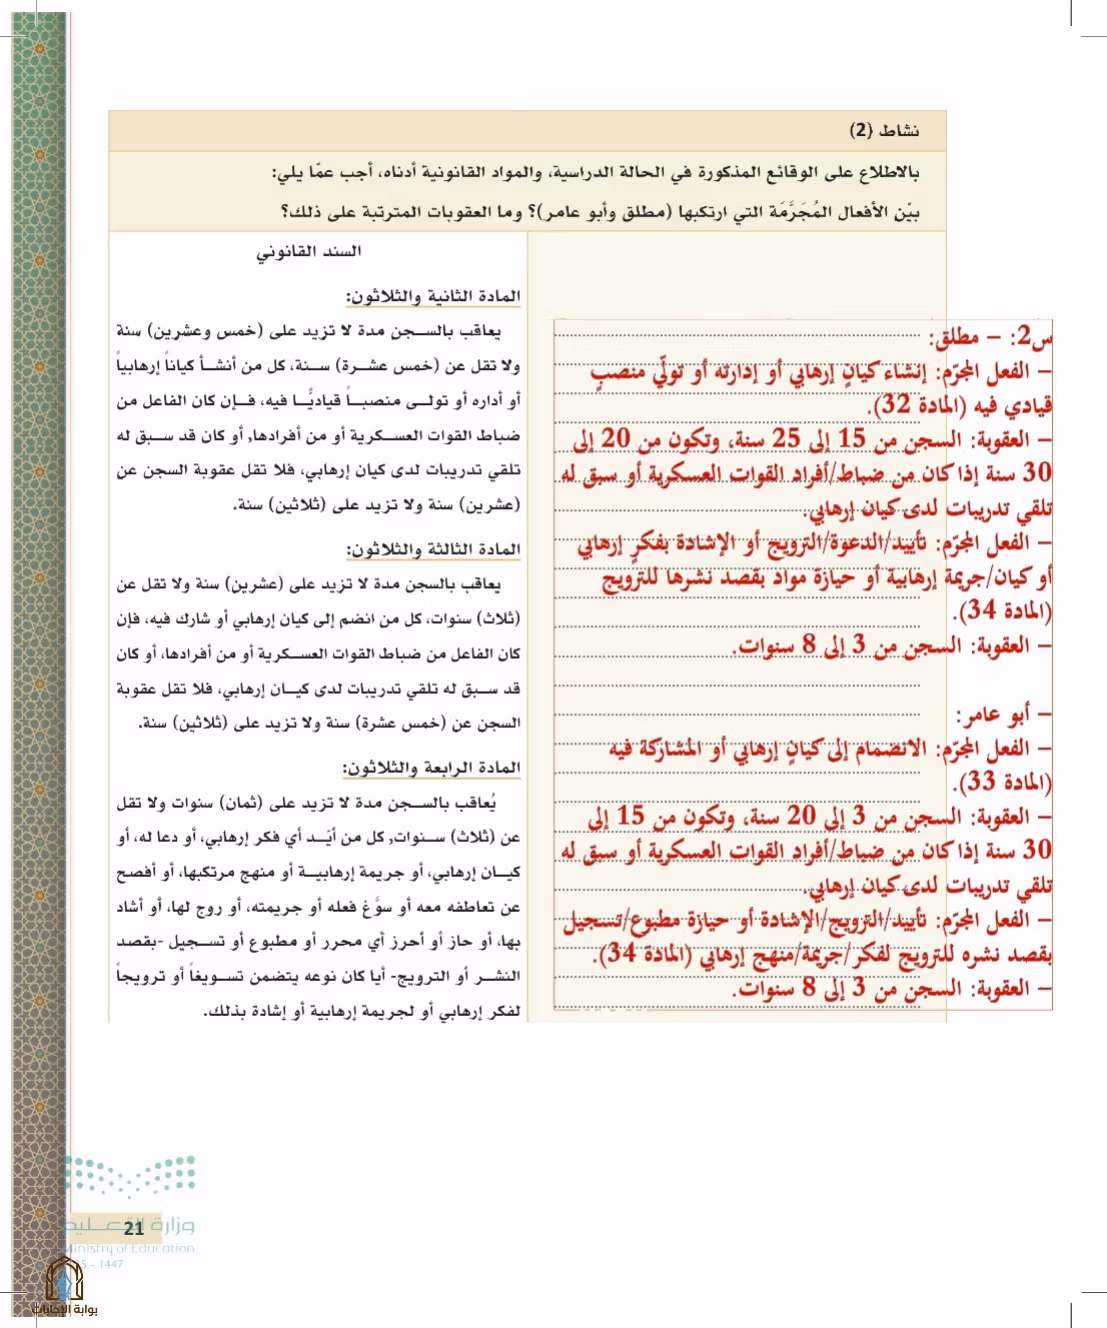 نشاط (2)
بالاطلاع على الوقائع المذكورة في الحالة الدراسية، والمواد القانونية أدناه، أجب عمّا يلي:
بيّن الأفعال المُجَرَّمَة التي ارتكبها (مطلق وأبو عامر)؟ وما العقوبات المترتبة على ذلك؟
س2: – مطلق:
– الفعل المجرّم: إنشاء كيانٍ إرهابي أو إدارته أو تولّي منصبٍ
قيادي فيه (المادة 32).
– العقوبة: السجن من 15 إلى 25 سنة، وتكون من 20 إلى
30 سنة إذا كان من ضباط/أفراد القوات العسكرية أو سبق له
تلقي تدريبات لدى كيان إرهابي.
– الفعل المجرّم: تأييد/الدعوة/الترويج أو الإشادة بفكرٍ إرهابي
أو كيان/جريمة إرهابية أو حيازة مواد بقصد نشرها للترويج
(المادة 34).
– العقوبة: السجن من 3 إلى 8 سنوات.
– أبو عامر:
– الفعل المجرّم: الانضمام إلى كيانٍ إرهابي أو المشاركة فيه
(المادة 33).
– العقوبة: السجن من 3 إلى 20 سنة، وتكون من 15 إلى
30 سنة إذا كان من ضباط/أفراد القوات العسكرية أو سبق له
تلقي تدريبات لدى كيان إرهابي.
– الفعل المجرّم: تأييد/الترويج/الإشادة أو حيازة مطبوع/تسجيل
بقصد نشره للترويج لفكر/جريمة/منهج إرهابي (المادة 34).
– العقوبة: السجن من 3 إلى 8 سنوات.
السند القانوني
المادة الثانية والثلاثون:
يعاقب بالسجن مدة لا تزيد على (خمس وعشرين) سنة
ولا تقل عن (خمس عشرة) سنة، كل من أنشأ كياناً إرهابياً
أو أداره أو تولى منصباً قياديًّا فيه، فإن كان الفاعل من
ضباط القوات العسكرية أو من أفرادها, أو كان قد سبق له
تلقي تدريبات لدى كيان إرهابي، فلا تقل عقوبة السجن عن
(عشرين) سنة ولا تزيد على (ثلاثين) سنة.
المادة الثالثة والثلاثون:
يعاقب بالسجن مدة لا تزيد على (عشرين) سنة ولا تقل عن
(ثلاث) سنوات، كل من انضم إلى كيان إرهابي أو شارك فيه، فإن
كان الفاعل من ضباط القوات العسكرية أو من أفرادها، أو كان
قد سبق له تلقي تدريبات لدى كيان إرهابي، فلا تقل عقوبة
السجن عن (خمس عشرة) سنة ولا تزيد على (ثلاثين) سنة.
المادة الرابعة والثلاثون:
يُعاقب بالسجن مدة لا تزيد على (ثمان) سنوات ولا تقل
عن (ثلاث) سنوات, كل من أيّد أي فكر إرهابي، أو دعا له، أو
كيان إرهابي، أو جريمة إرهابية أو منهج مرتكبها، أو أفصح
عن تعاطفه معه أو سوَّغ فعله أو جريمته، أو روج لها، أو أشاد
بها، أو حاز أو أحرز أي محرر أو مطبوع أو تسجيل -بقصد
النشر أو الترويج- أيا كان نوعه يتضمن تسويغاً أو ترويجاً
لفكر إرهابي أو لجريمة إرهابية أو إشادة بذلك.
وزارة التعليم
21
Ministry of Education
5 - 1447
بوابة الإجابات